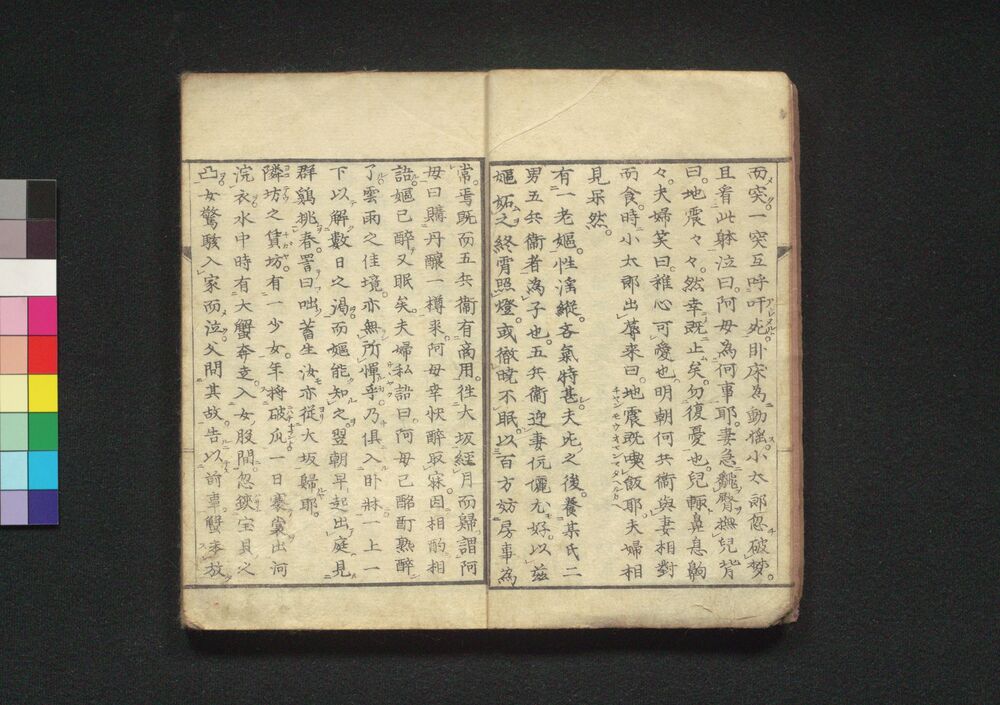 而突。一突互呼吁。此卧床為動搖。小太郎忽破夢。
且看此躰泣曰。阿母為何事耶。妻急離臀撫兒背
曰。地震々々。然幸既止矣。勿復憂也。兒輙鼻息齁
々。夫婦笑曰。稚心可愛也。明朝何兵衞與妻相對
而食。時小太郎出席来曰。地震既喫飯耶。夫婦相
見呆然。
有一老嫗。性淫縱。吝氣特甚。夫死之後。養某氏二
男五兵衞者為子也。五兵衞迎妻伉儷尤好。以茲
嫗妬之終霄照燈。或徹曉不眠。以百方妨房事為
常。焉既而五兵衞有商用。往大坂經月而歸。謂阿
母曰。購丹釀一樽来。阿母幸快醉取寐。因相酌相
語。嫗已醉又眠矣。夫婦私語曰。阿母已酩酊熟醉
了。雲雨之佳境。亦無所憚乎。乃俱入卧牀。一上一
下以解數日之渴。而嫗能知之。翌朝早起出庭。見
群鷄挑春。詈曰。咄畜生汝亦從大坂歸耶。
隣坊之貨坊。有一少女。年将破瓜。一日褰裳出河
浣衣水中。時有大蟹奔走入女股間。忽鋏宝貝之
凸。女驚駭入家而泣。父問其故。告以前事。蟹未放